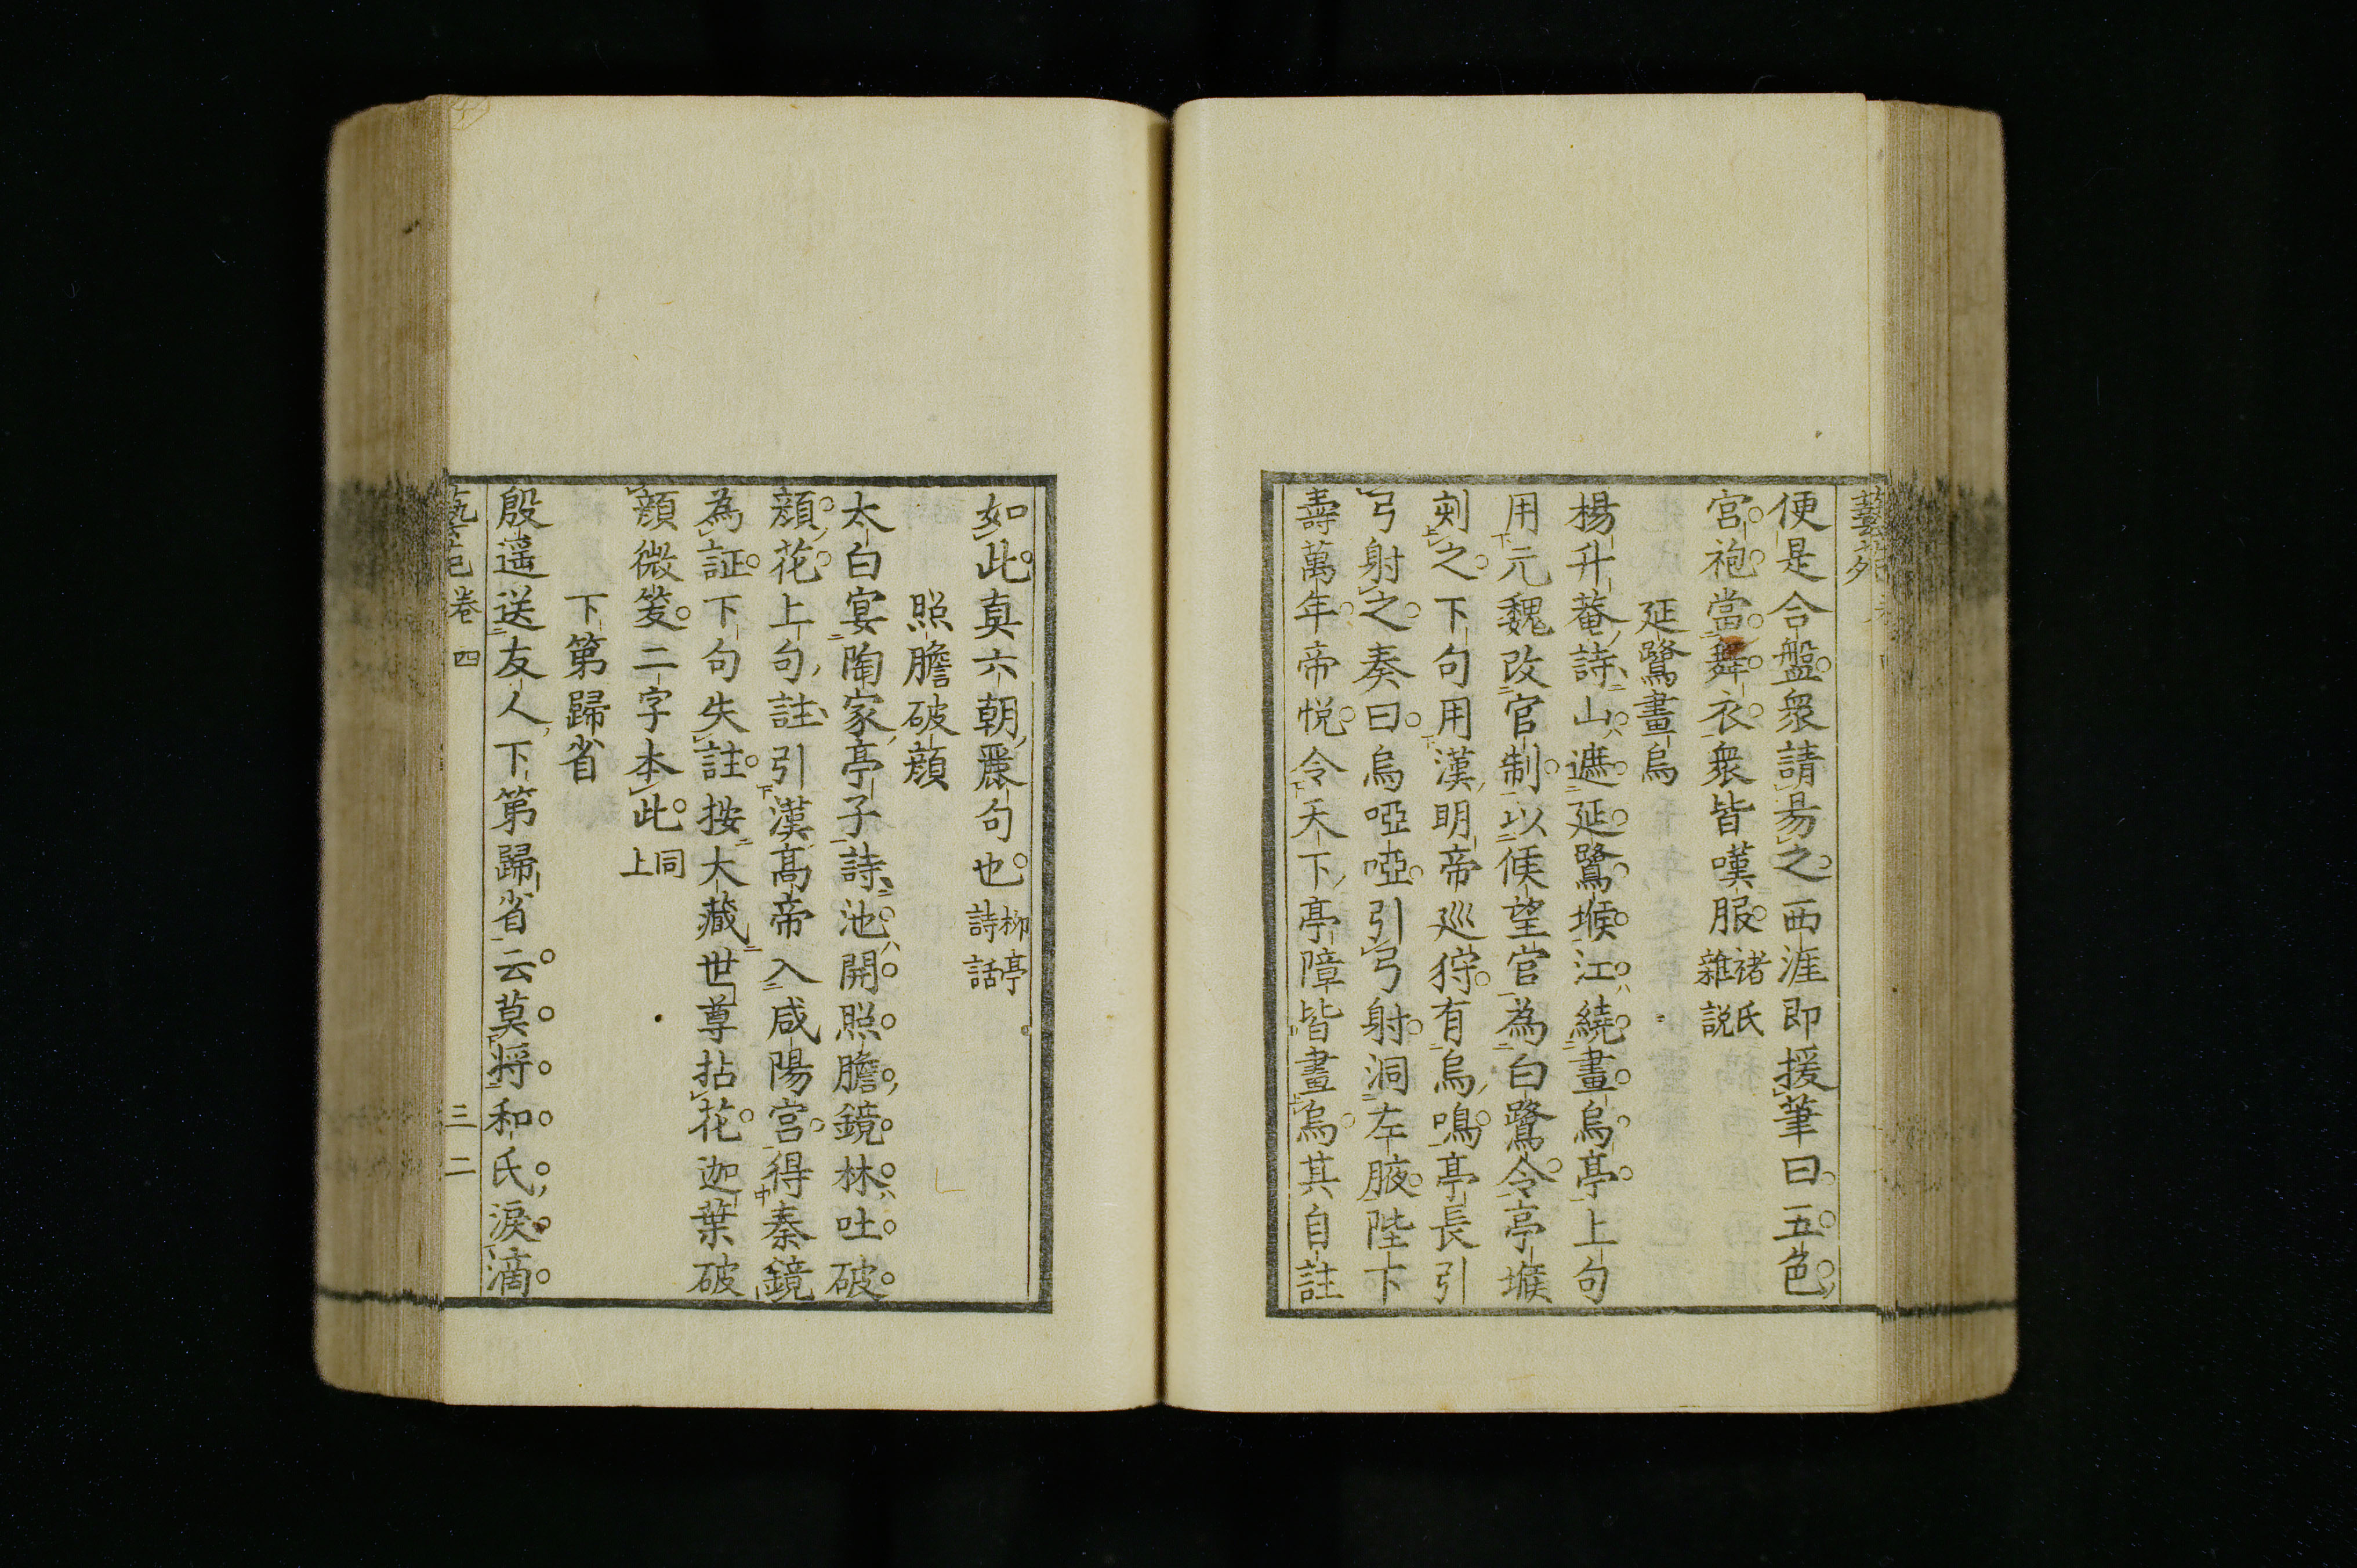 藝苑
便是合盤衆請易之西涯即援筆曰五色
宮袍當舞衣衆皆嘆服諸氏雜説
延鷺畫烏
楊升菴詩山遮延鷺堠江繞畫烏亭上句
用元魏改官制以候望官為白鷺令亭堠
刻之下句用漢明帝巡狩有烏鳴亭長引
弓射之奏曰烏啞啞引弓射洞左腋陛下
壽萬年帝悦令天下亭障皆畫烏其自註
如此真六朝麗句也柳亭詩話
照膽破顔
太白宴陶家亭子詩池開照膽鏡林吐破
顔花上句註引漢高帝入咸陽宮得秦鏡
為証下句失註按大藏世尊拈花迦葉破
顔微笑二字本此同上
下第歸省
殷遥送友人下第歸省云莫将和氏淚滴
藝苑卷四
三二